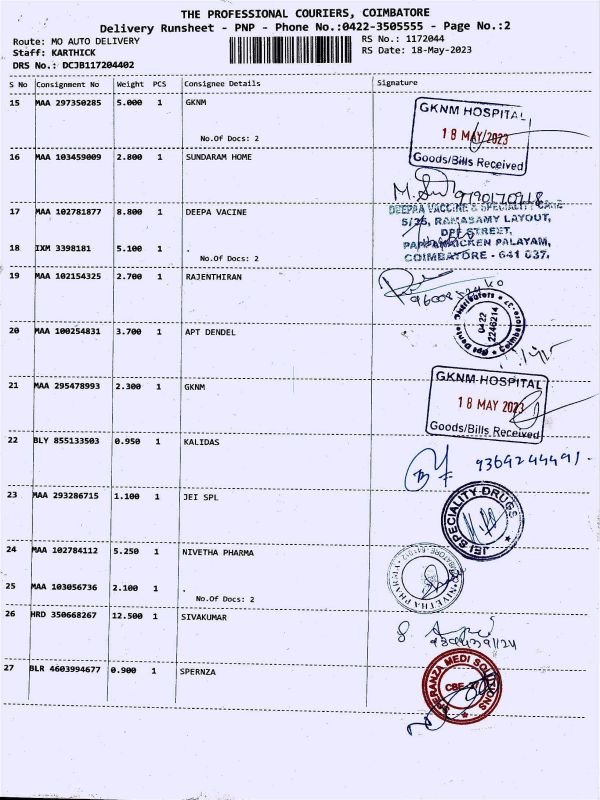 THE PROFESSIONAL COURIERS, COIMBATORE
Delivery Runsheet - PNP - Phone No.:0422-3505555 - Page No.:2
Route: MO AUTO DELIVERY RS No.: 1172044
Staff: KARTHICK RS Date: 18-May-2023
DRS No.: DCJB117204402
S No Consignment No Weight PCS Consignee Details Signature
15 MAA 297350285 5.000 1 GKNM
GKNM HOSPITAL
18 MAY 2023
No.Of Docs: 2
Goods/Bills Received
16 MAA 103459009 2.800 1 SUNDARAM HOME
17 MAA 102781877 8.800 1 DEEPA VACINE
DEEPAA VACCINE & SPECIALITY CARE
5/35, RAMASAMY LAYOUT,
STREET,
PAPPANAICKEN PALAYAM,
COIMBATORE - 641 037.
18 IXM 3398181 5.100 1
No.Of Docs: 2
19 MAA 102154325 2.700 1 RAJENTHIRAN
20 MAA 100254831 3.700 1 APT DENDEL
Distributors
0422
2246214
21 MAA 295478993 2.300 1 GKNM
GKNM HOSPITAL
18 MAY 2023
Goods/Bills Received
22 BLY 855133503 0.950 1 KALIDAS
9369244491.
23 MAA 293286715 1.100 1 JEI SPL
JEI SPECIALITY DRUGS
24 MAA 102784112 5.250 1 NIVETHA PHARMA
NIVETHA PHARMA
25 MAA 103056736 2.100 1 .
No.Of Docs: 2
26 HRD 350668267 12.500 1 SIVAKUMAR
27 BLR 4603994677 0.900 1 SPERNZA
SPERANZA MEDI SOLUTIONS
CBE